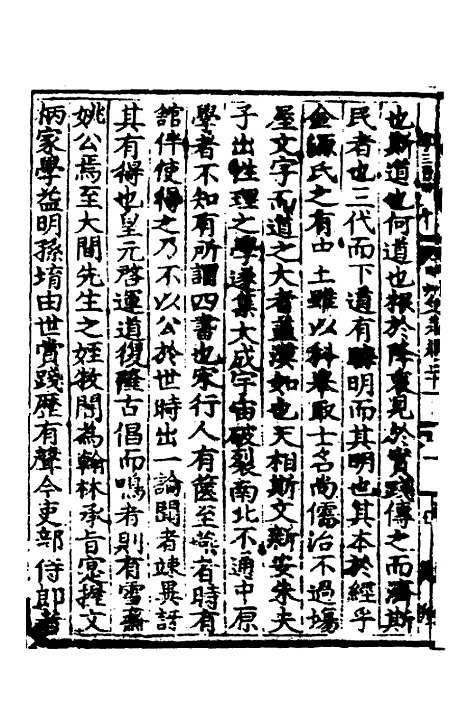 也斯道也何道也根於降衷見於實踐傳之而濟斯
民者也三代而下道有時明而其明也其本於經乎
金源氏之有中土雖以科舉取士名尚儒治不過場
屋文字而道之大者蓋漠如也天相斯文新安朱夫
子出性理之學遂集大成宇宙破裂南北不通中原
學者不知有所謂四書也宋行人有篋至燕者時有
館伴使得之乃不以公於世時出一論聞者竦異訝
其有得也皇元啓運道復隆古倡而鳴者則有雪齋
姚公焉至大間先生之姪牧闇為翰林承旨寔握文
柄家學益明孫堉由世賞踐歷有聲今吏部侍郎